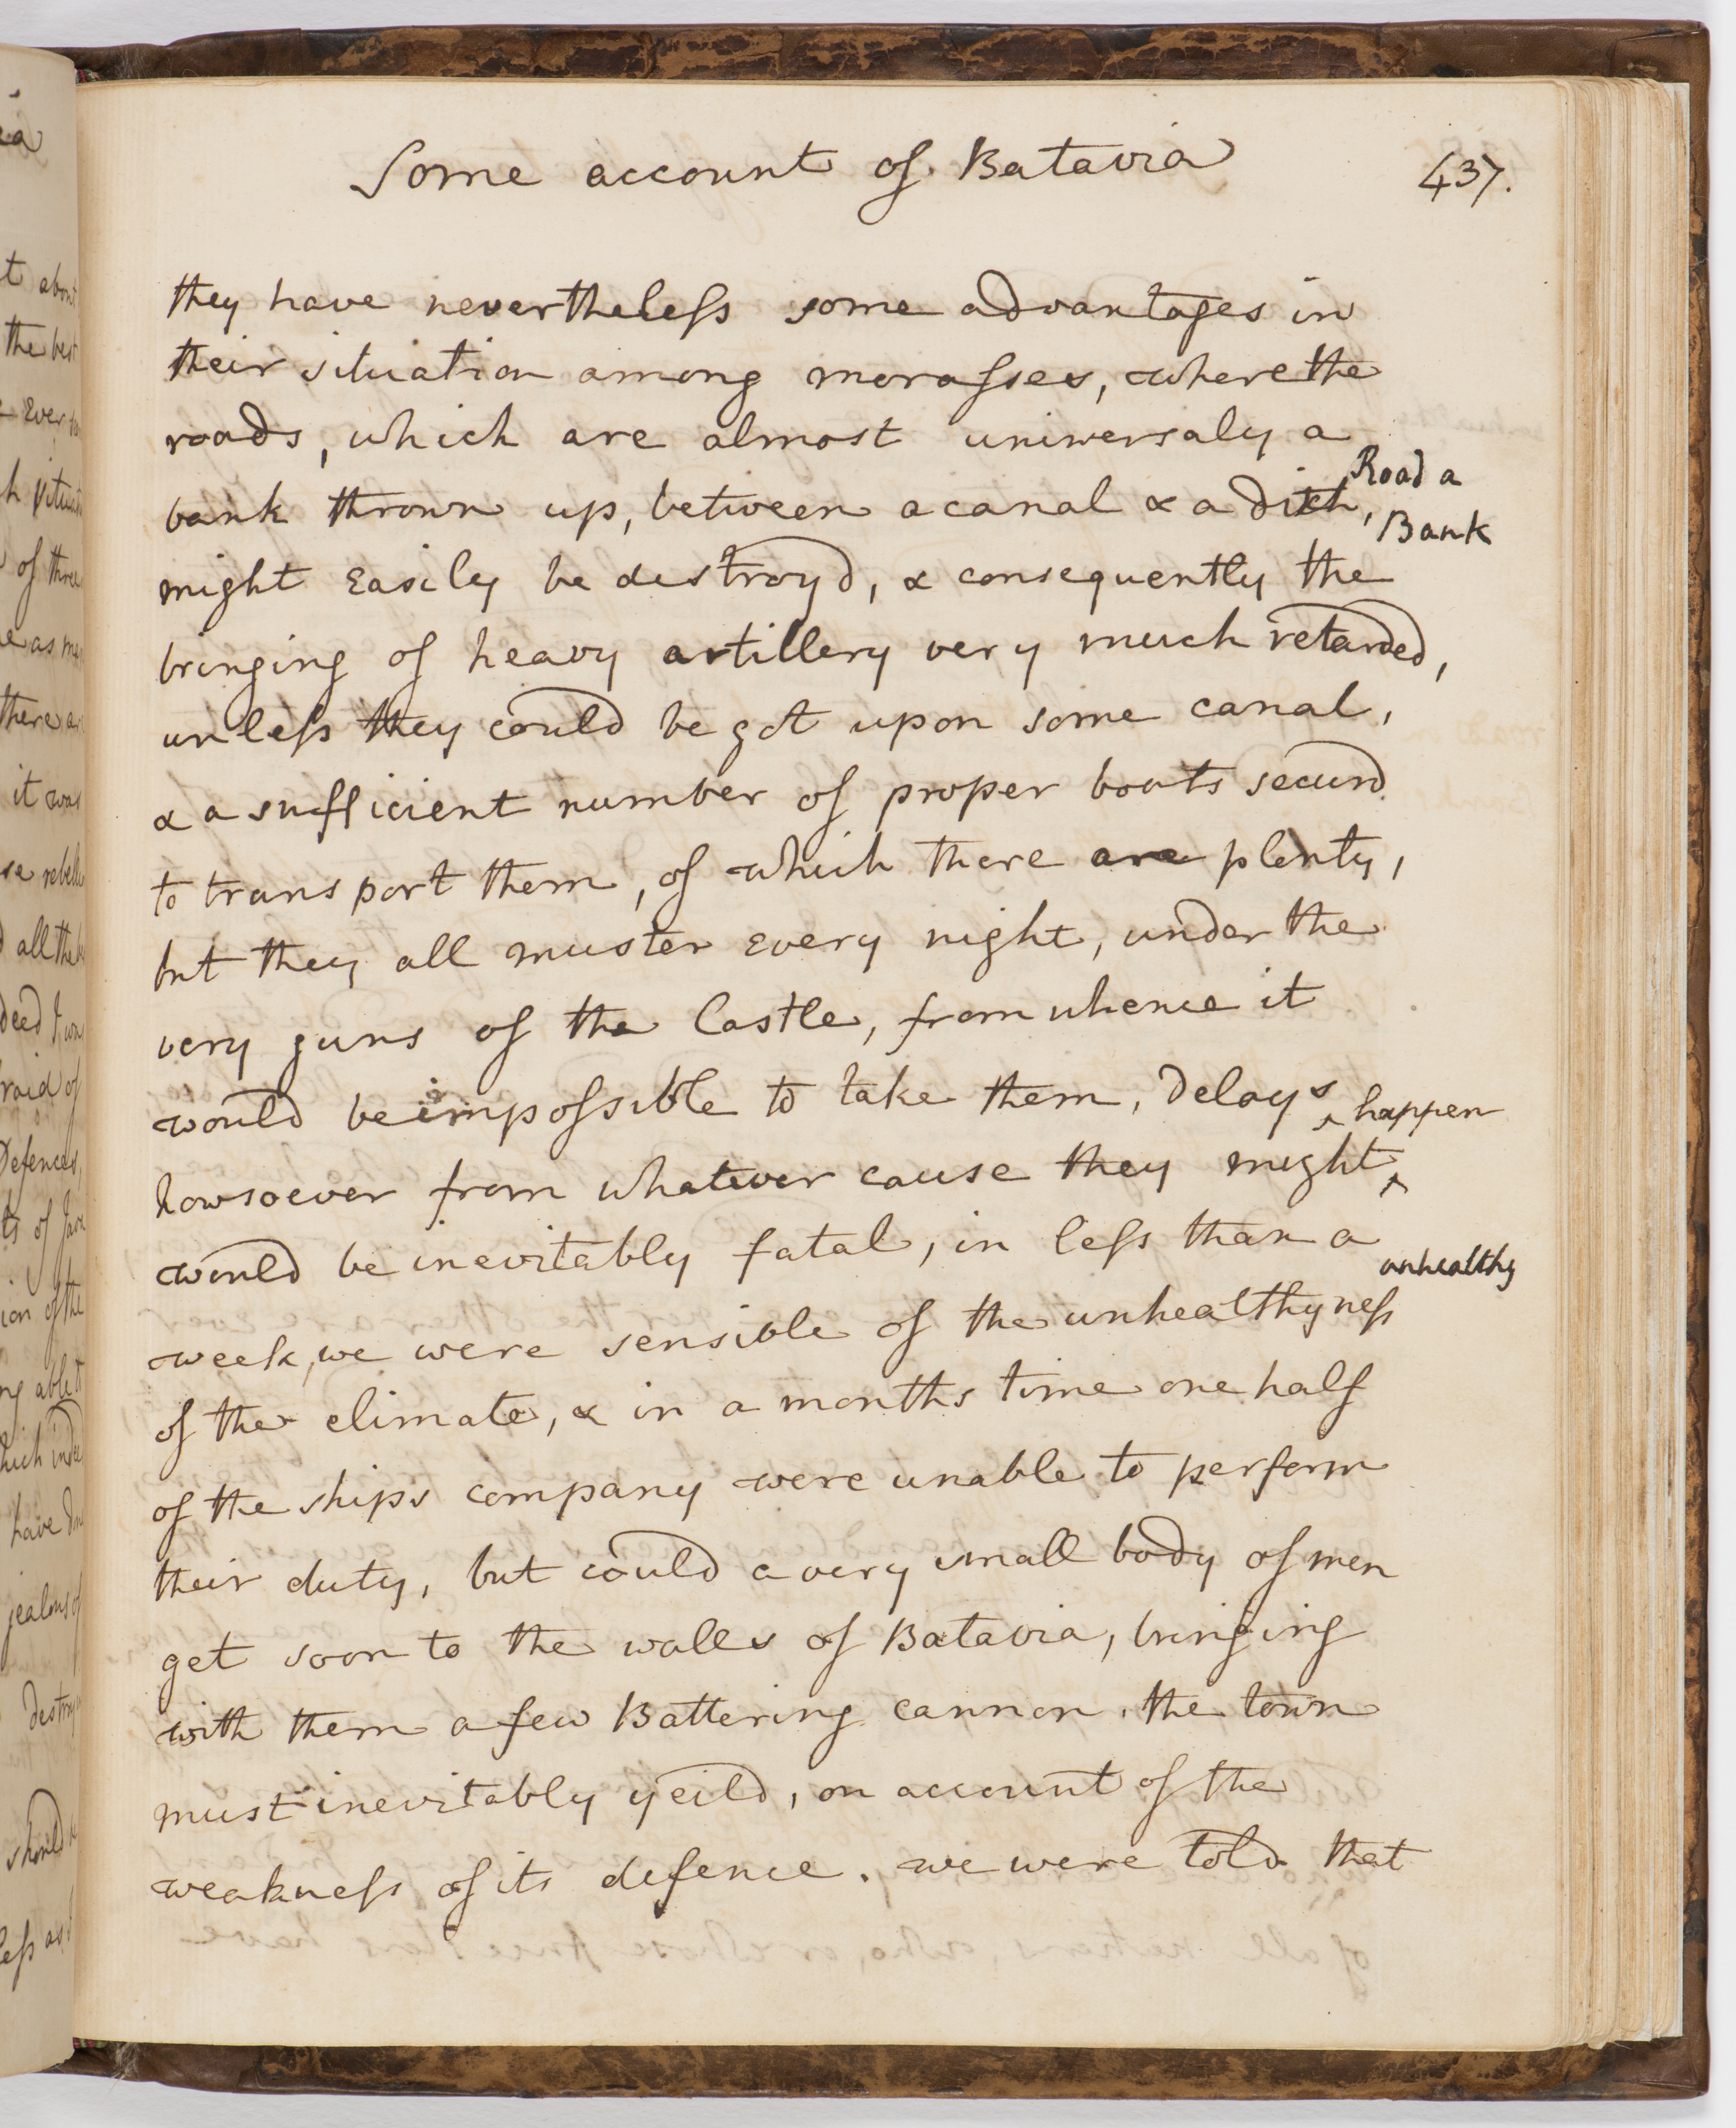 Some account of Batavia
437.
they have nevertheless some advantages in
their situation among morasses, where the
roads, which are almost universaly a
bank thrown up, between a canal & a ditch,
Road a
Bank
might Easily be destroyd, & consequently the
bringing of heavy artillery very much retarded,
unless they could be got upon some canal,
& a sufficient number of proper boats securd
to transport them, of which there are plenty,
but they all muster every night, under the
very guns of the Castle, from whence it
would be impossible to take them, Delays
howsoever from whatever cause they might ^ happen
would be inevitably fatal, in less than a
week, we were sensible of the unhealthyness
unhealthy
of the climate, & in a months time one half
of the ships company were unable to perform
their duty, but could a very small body of men
get soon to the walls of Batavia, bringing
with them a few Battering cannon, the town
must inevitably yeild, on account of the
weakness of its defence. we were told that